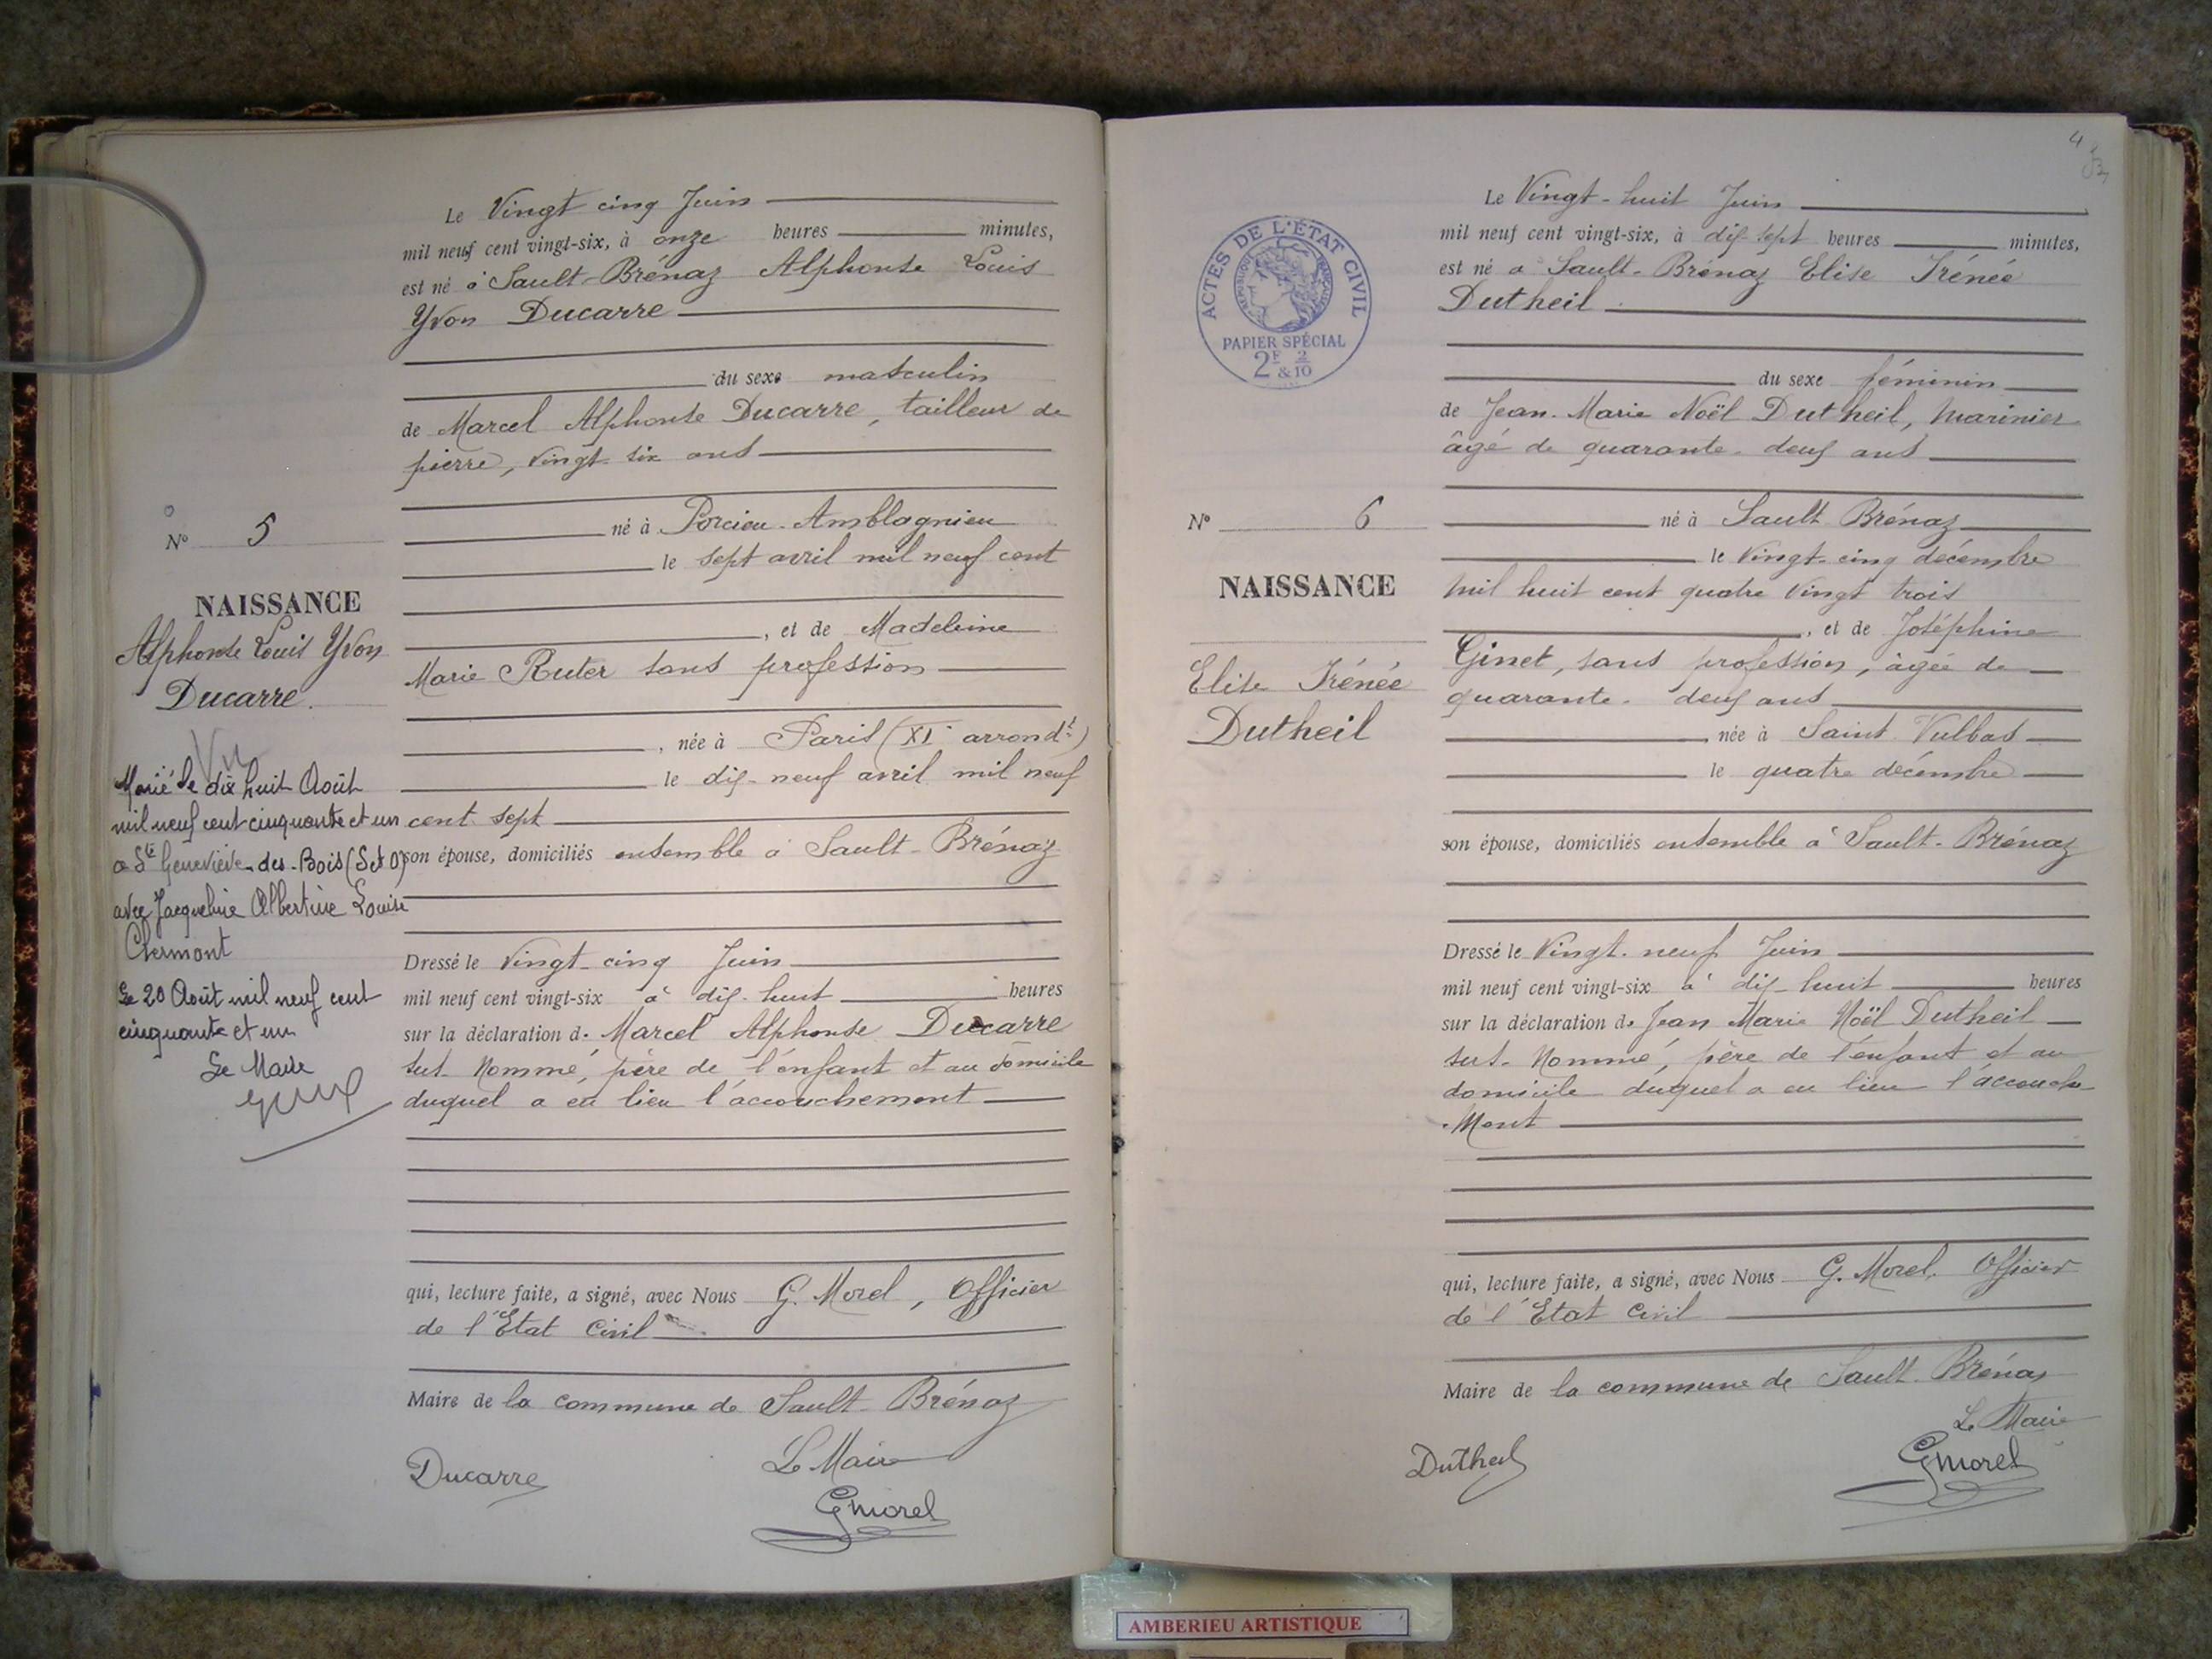 Le Vingt cinq Juin
mil neuf cent vingt-six, à onze heures minutes,
est né à Sault-Brénaz Alphonse Louis
Yvon Ducarre
du sexe masculin
de Marcel Alphonse Ducarre, tailleur de
pierre, vingt-six ans
né à Porcieu-Amblagnieu
le sept avril mil neuf cent
, et de Madeleine
Marie Ruter sans profession
, née à Paris (XIe arrondt)
le dix-neuf avril mil neuf
cent sept
son épouse, domiciliés ensemble à Sault-Brénaz
Dressé le vingt-cinq Juin
mil neuf cent vingt-six à dix-huit heures
sur la déclaration de Marcel Alphonse Ducarre
sus-Nommé, père de l'enfant et au domicile
duquel a eu lieu l'accouchement
qui, lecture faite, a signé, avec Nous G. Morel, Officier
de l'Etat Civil
Maire de la commune de Sault-Brénaz
Le Maire
Ducarre
GMorel
No 5
NAISSANCE
Alphonse Louis Yvon
Ducarre.
Vu
Marié le dix huit Août
mil neuf cent cinquante et un
à Ste Geneviève-des-Bois (S et O)
avec Jacqueline Albertine Louise
Clermont
Le 20 Août mil neuf cent
cinquante et un
Le Maire
4
ACTES DE L'ÉTAT CIVIL
RÉPUBLIQUE FRANÇAISE
PAPIER SPÉCIAL
2F & 2/10
Le Vingt-huit Juin
mil neuf cent vingt-six, à dix-sept heures minutes,
est né à Sault-Brénaz Elise Irénée
Dutheil
du sexe féminin
de Jean-Marie Noël Dutheil, Marinier
âgé de quarante-deux ans
né à Sault-Brénaz
le Vingt-cinq décembre
mil huit cent quatre vingt trois
, et de Joséphine
Ginet, sans profession, âgée de
quarante-deux ans
née à Saint Vulbas
le quatre décembre
son épouse, domiciliés ensemble à Sault-Brénaz
Dressé le Vingt-neuf Juin
mil neuf cent vingt-six à dix-huit heures
sur la déclaration de Jean Marie Noël Dutheil
sus-Nommé, père de l'enfant et au
domicile duquel a eu lieu l'accouche
-Ment
qui, lecture faite, a signé, avec Nous G. Morel, Officier
de l'Etat Civil
Maire de la commune de Sault-Brénaz
Le Maire
Dutheil
GMorel
No 6
NAISSANCE
Elise Irénée
Dutheil
AMBERIEU ARTISTIQUE